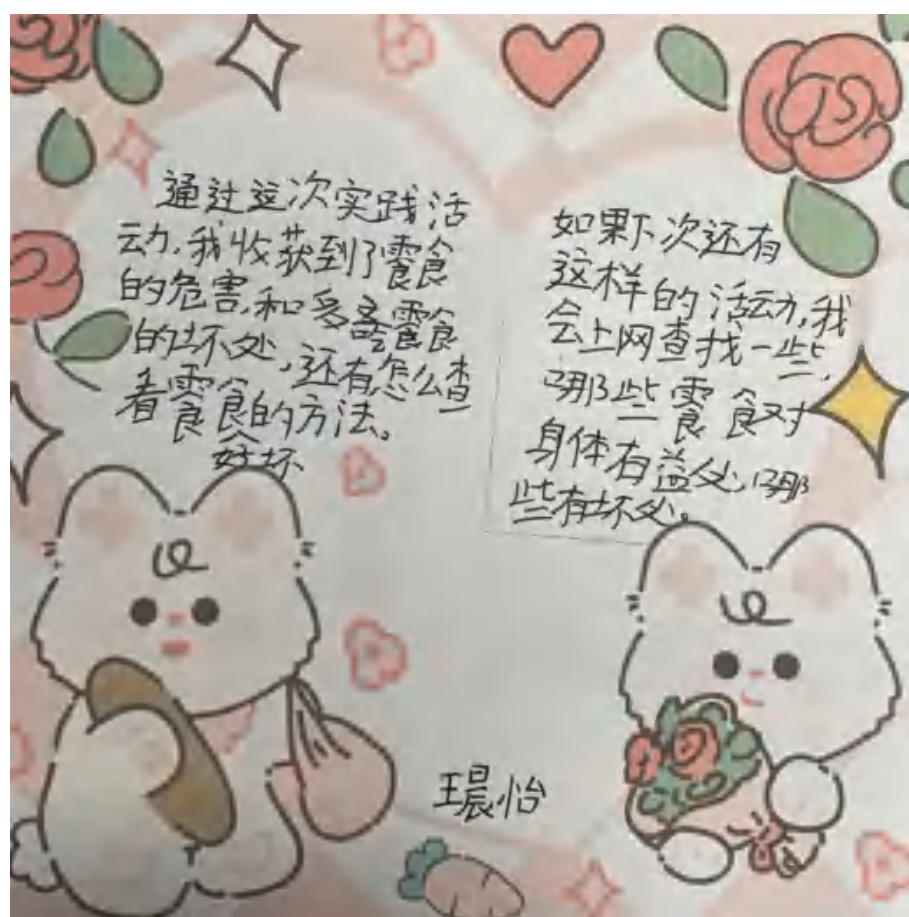 通过这次实践活
动,我收获到了零食
的危害,和多吃零食
的坏处,还有怎么查
看零食的方法。
好坏
如果下次还有
这样的活动,我
会上网查找一些,
那些零食对
身体有益处,哪
些有坏处。
王晨怡